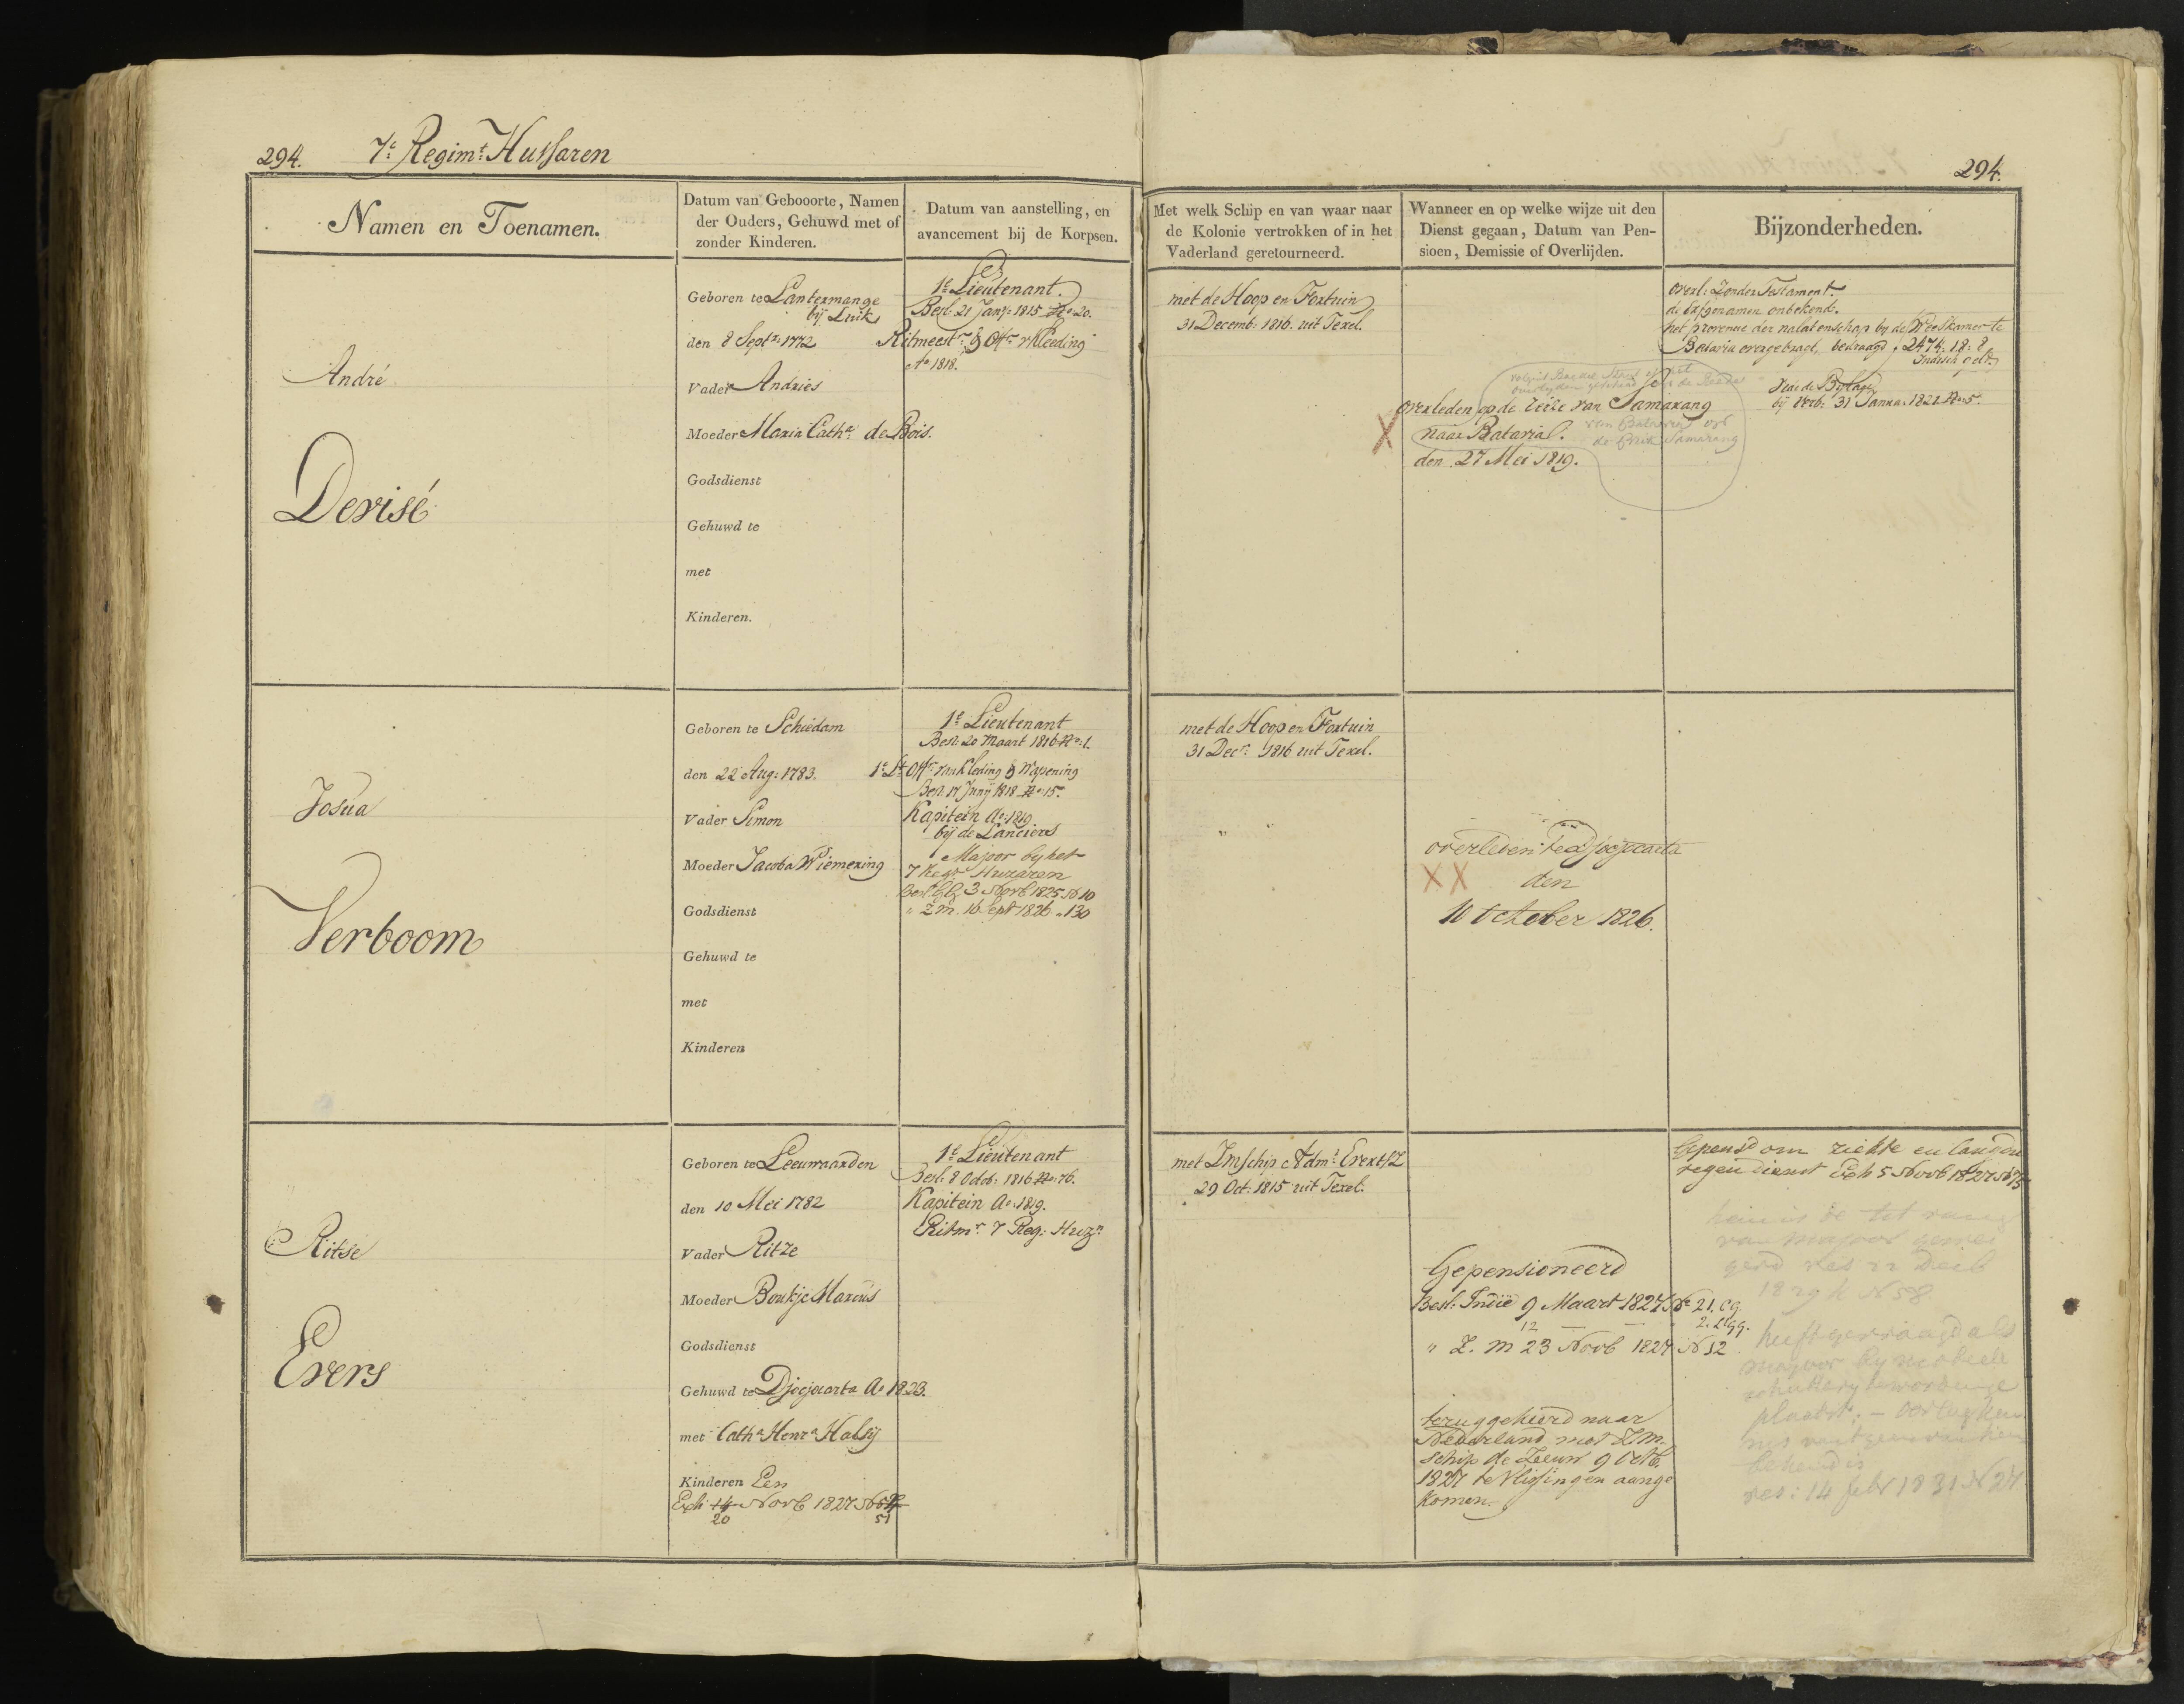 294. 7e Regimt Hussaren
294.
Namen en Toenamen.
Datum van Gebooorte, Namen
der Ouders, Gehuwd met of
zonder Kinderen.
Datum van aanstelling, en
avancement bij de Korpsen.
Met welk Schip en van waar naar
de Kolonie vertrokken of in het
Vaderland geretourneerd.
Wanneer en op welke wijze uit den
Dienst gegaan, Datum van Pen-
sioen, Demissie of Overlijden.
Bijzonderheden.
André
Derisé
Geboren te Lantermange
bij Luik
den 8 Septr 1772
Vader Andries
Moeder Maria Catha de Bois.
Godsdienst
Gehuwd te
met
Kinderen.
1e Lieutenant.
Besl. 21 Janij 1815 No 20.
Ritmeestr & Offr v Kleeding
Ao 1818.
met de Hoop en Fortuin
31 Decemb: 1816. uit Texel.
overleden op de reize van Samarang
naar Batavia.
den 27 Mei 1819.
overl: Zonder Testament.
de Erfgenamen onbekend.
het provenue der nalatenschap by de Weeskamer te
Batavia overgebragt, bedraagd f 2474:18:8
Indisch geld
Zie de Bijlage
bij Verb: 31 Janua: 1821 No 5.
Josua
Verboom
Geboren te Schiedam
den 22 Aug: 1783.
Vader Simon
Moeder Jacoba Wiemering
Godsdienst
Gehuwd te
met
Kinderen
1e Lieutenant
Besl. 20 Maart 1816 No 1.
1e Lt Offr van Kleding & Wapening
Besl. 17 Junij 1818 No 15.
Kapitein Ao 1819
bij de Lanciers
Majoor by het
7 Regt Huzaren
Beslt GG 3 Novb 1825 No 10
" Z M. 16 Sept 1826 " 130
met de Hoop en Fortuin
31 Decr 1816 uit Texel.
" "
overleden te Djocjocarta
XX den
10 October 1826.
Ritse
Evers
Geboren te Leeuwaarden
den 10 Mei 1782
Vader Ritze
Moeder Boukje Marcus
Godsdienst
Gehuwd te Djocjocarta Ao 1823.
met Catha Henra Halsij
Kinderen Een
Exh 14 Novb 1827 No 54
20 51
1e Lieutenant
Besl: 8 Octob: 1816 No 76.
Kapitein Ao 1819.
Ritmr 7 Reg: Huzn
met Zm schip Adml Evertsz
29 Oct: 1815 uit Texel.
Gepensioneerd
Besl: Indië 9 Maart 1827 No 21. CG.
12 — — 2. LtGG.
" Z. M 23 Novb 1827 No 12
teruggekeerd naar
Nederland met Z.M.
schip de Zeeuw 9 Octb.
1827 te Vlissingen aange
komen.
Gepensd om ziekte en langdu
regen dienst Exh 5 Novb 1827 No 13
van majoor gewei
gerd
heeft gevraagd als
majoor by mobiele
schuttery
plaatst;
bekend is
res: 14 febr 1831 N 27